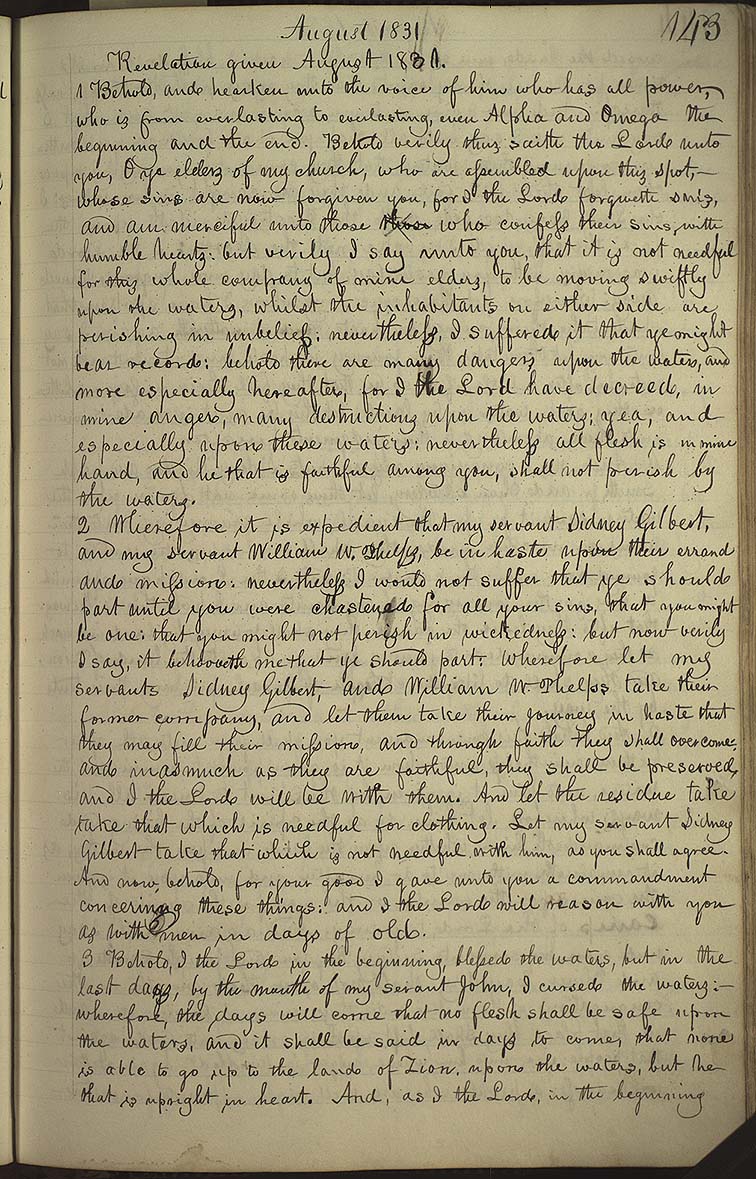 August 1831
143
Revelation given August 1831.
1 Behold, and hearken unto the voice of him who has all power,
who is from everlasting to everlasting, even Alpha and Omega the
beginning and the end. Behold verily thus saith the Lord unto
you, O ye elders of my church, who are assembled upon this spot,—
whose sins are now forgiven you, for I the Lord forgiveth sins,
and am merciful unto those those who confess their sins, with
humble hearts: but verily I say unto you, that it is not needful
for this whole company of mine elders, to be moving swiftly
upon the waters, whilst the inhabitants on either side are
perishing in unbelief; nevertheless, I suffered it that ye might
bear record: behold there are many dangers upon the waters, and
more especially hereafter, for I the Lord have decreed, in
mine anger, many destructions upon the waters; yea, and
especially upon these waters: nevertheless all flesh is in mine
hand, and he that is faithful among you, shall not perish by
the waters.
2 Wherefore it is expedient that my servant Sidney Gilbert,
and my servant William W. Phelps, be in haste upon their errand
and mission: nevertheless I would not suffer that ye should
part until you were chastened for all your sins, that you might
be one: that you might not perish in wickedness: but now verily
I say, it behooveth me that ye should part: wherefore let my
servants Sidney Gilbert, and William W. Phelps take their
former company, and let them take their journey in haste that
they may fill their mission, and through faith they shall overcome:
and inasmuch as they are faithful, they shall be preserved,
and I the Lord will be with them. And let the residue take
take that which is needful for clothing. Let my servant Sidney
Gilbert take that which is not needful with him, as you shall agree.
And now, behold, for your good I gave unto you a commandment
concerning these things: and I the Lord will reason with you
as with men in days of old.
3 Behold, I the Lord in the beginning, blessed the waters, but in the
last days, by the mouth of my servant John, I cursed the waters:—
wherefore, the days will come that no flesh shall be safe upon
the waters, and it shall be said in days to come, that none
is able to go up to the land of Zion, upon the waters, but he
that is upright in heart. And, as I the Lord, in the beginning